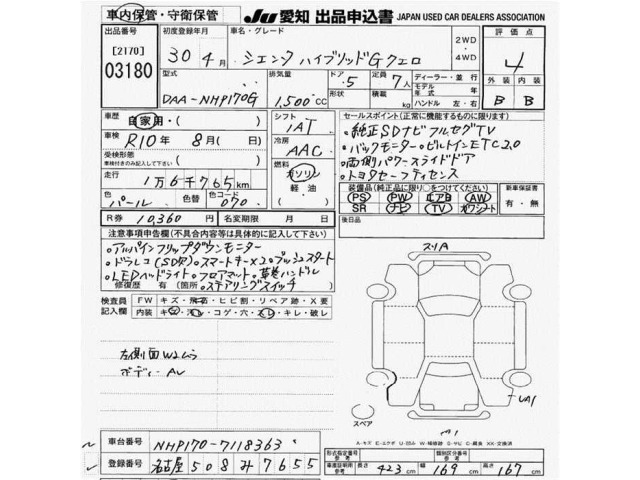 車内保管・守衛保管
JU 愛知 出品申込書 JAPAN USED CAR DEALERS ASSOCIATION
出品番号 初度登録年月 車名・グレード 2WD・4WD 評価点
[2170]
03180 30年4月 シエンタ ハイブリッドG クエロ 4
型式 排気量 ドア 形状 定員 積載 ディーラー・並行 外装 内装
DAA-NHP170G 1,500cc 5 7人 kg モデル年式 年 ハンドル 左・右 B B
車歴 自家用・( )
シフト IAT
セールスポイント (正常に機能するものに限ります)
車検 R10年8月( 日)
冷房 AAC
・純正SDナビフルセグTV
・バックモニター・ビルトインETC2.0
・両側パワースライドドア
・トヨタセーフティセンス
受検形態 車検付きのみ記入して下さい
燃料 ガソリン 軽油 ( )
走行 1万6千765km
装備品 (純正品に限り○をつけてください) 新車保証書
色 パール 色替 色コード 070
PS PW エアB AW
SR ナビ TV カワシート 有・無
R券 10,360円 名変期限 月 日
後日品
注意事項申告欄 (不具合内容等は具体的に記入して下さい)
・アルパインフリップダウンモニター
・ドラレコ(SD欠)・スマートキー×2・プッシュスタート
・LEDヘッドライト・フロアマット・革巻ハンドル
修復歴 有 (箇所 ・ステアリングスイッチ )
スリA
検査員記入欄 FW キズ・飛石・ヒビ割・リペア跡・X要
内装 キズ・汚レ・コゲ・穴・スレ・キレ・破レ
左側面W2ムラ
ボディーAU
UA1
スペア
A-キズ E-エクボ U-凹み W-補修跡 S-サビ C-腐食 XX-交換済
車台番号 NHP170-7118363
登録番号 名古屋 508 み 7655
形式指定番号 参考 類別区分番号 参考
車庫証明用 参考 長さ 423 cm 幅 169 cm 高さ 167 cm